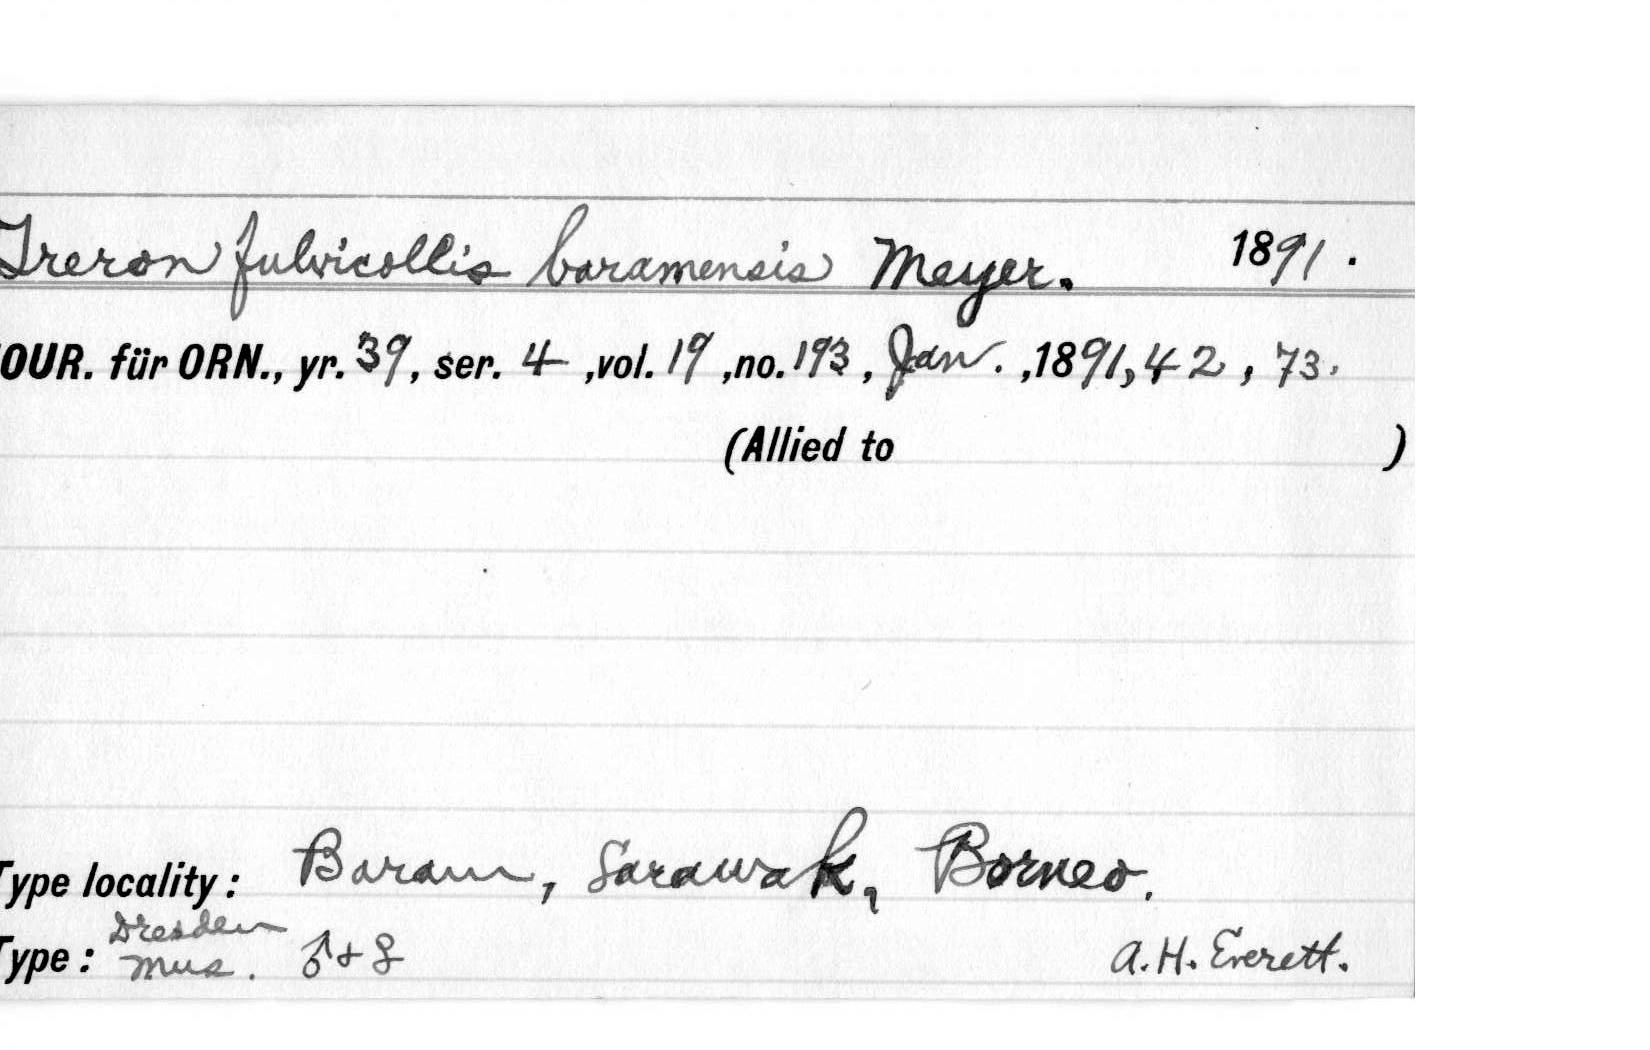 Treron fulvicollis baramensis Meyer. 1891.
OUR. für ORN., yr. 39, ser. 4 ,vol. 19 ,no. 193 , Jan. ,1891, 42 , 73.
(Allied to )
Type locality: Baram, Sarawak, Borneo.
Type: Dresden Mus. ♂ + ♀ A. H. Everett.